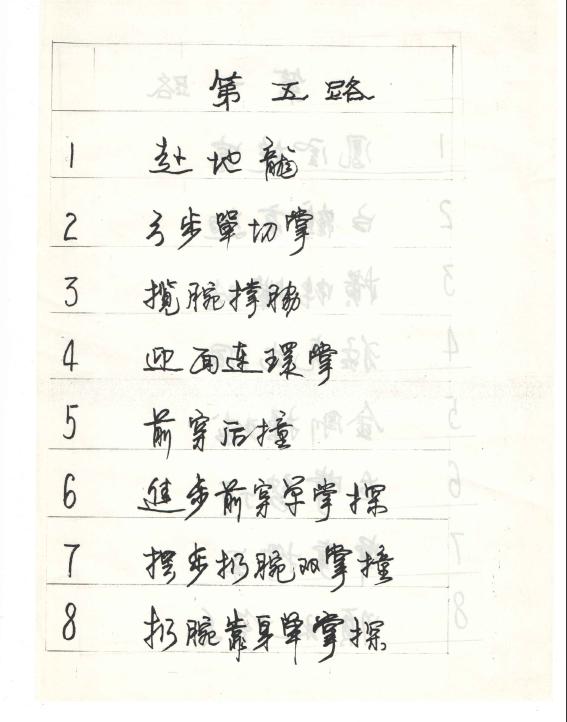 第五路
1 赴地龍
2 弓步單切掌
3 攬腕撑胁
4 迎面连環掌
5 前穿后撞
6 進步前穿单掌探
7 摆步扔腕双掌撞
8 扔腕靠身单掌探